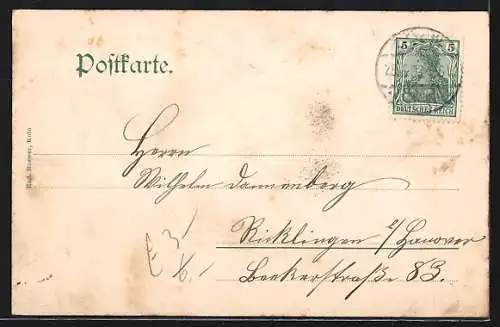 Postkarte.
5 5
DEUTSCHES REICH
Herrn
Wilhelm Dannenberg
Ricklingen b/Hanover
Beekerstraße 83.